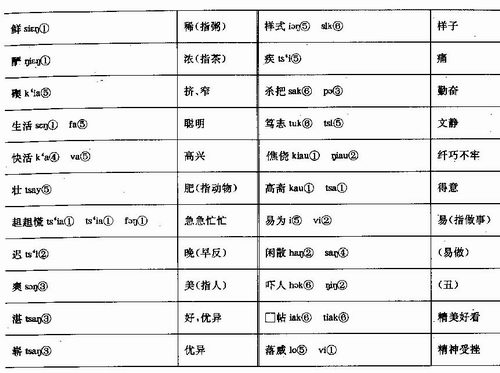 鲜 siɛŋ① 稀(指粥) 样式 iəŋ⑤ sik⑥ 样子
ȵiɛŋ① 浓(指茶) 疾 ts‘i⑤ 痛
k‘ia⑤ 挤、窄 杀把 sak⑥ pə③ 勤奋
生活 sɛŋ① fa⑤ 聪明 笃志 tuk⑥ tsi⑤ 文静
快活 k‘a④ va⑤ 高兴 僬侥 kiau① ȵiau② 纤巧不牢
壮 tsay⑤ 肥(指动物) 高斋 kau① tsa① 得意
趄趄慌 ts‘ia① ts‘ia① fəŋ① 急急忙忙 易为 i⑤ vi② 易(指做事)
迟 ts‘i② 晚(早反) 闲散 haŋ② saŋ④ (易做)
爽 səŋ③ 美(指人) 吓人 hək⑥ ȵiŋ② (丑)
湛 tsaŋ③ 好,优异 □帖 iak⑥ tiak⑥ 精美好看
崭 tsaŋ③ 优异 落威 lo⑤ vi① 精神受挫